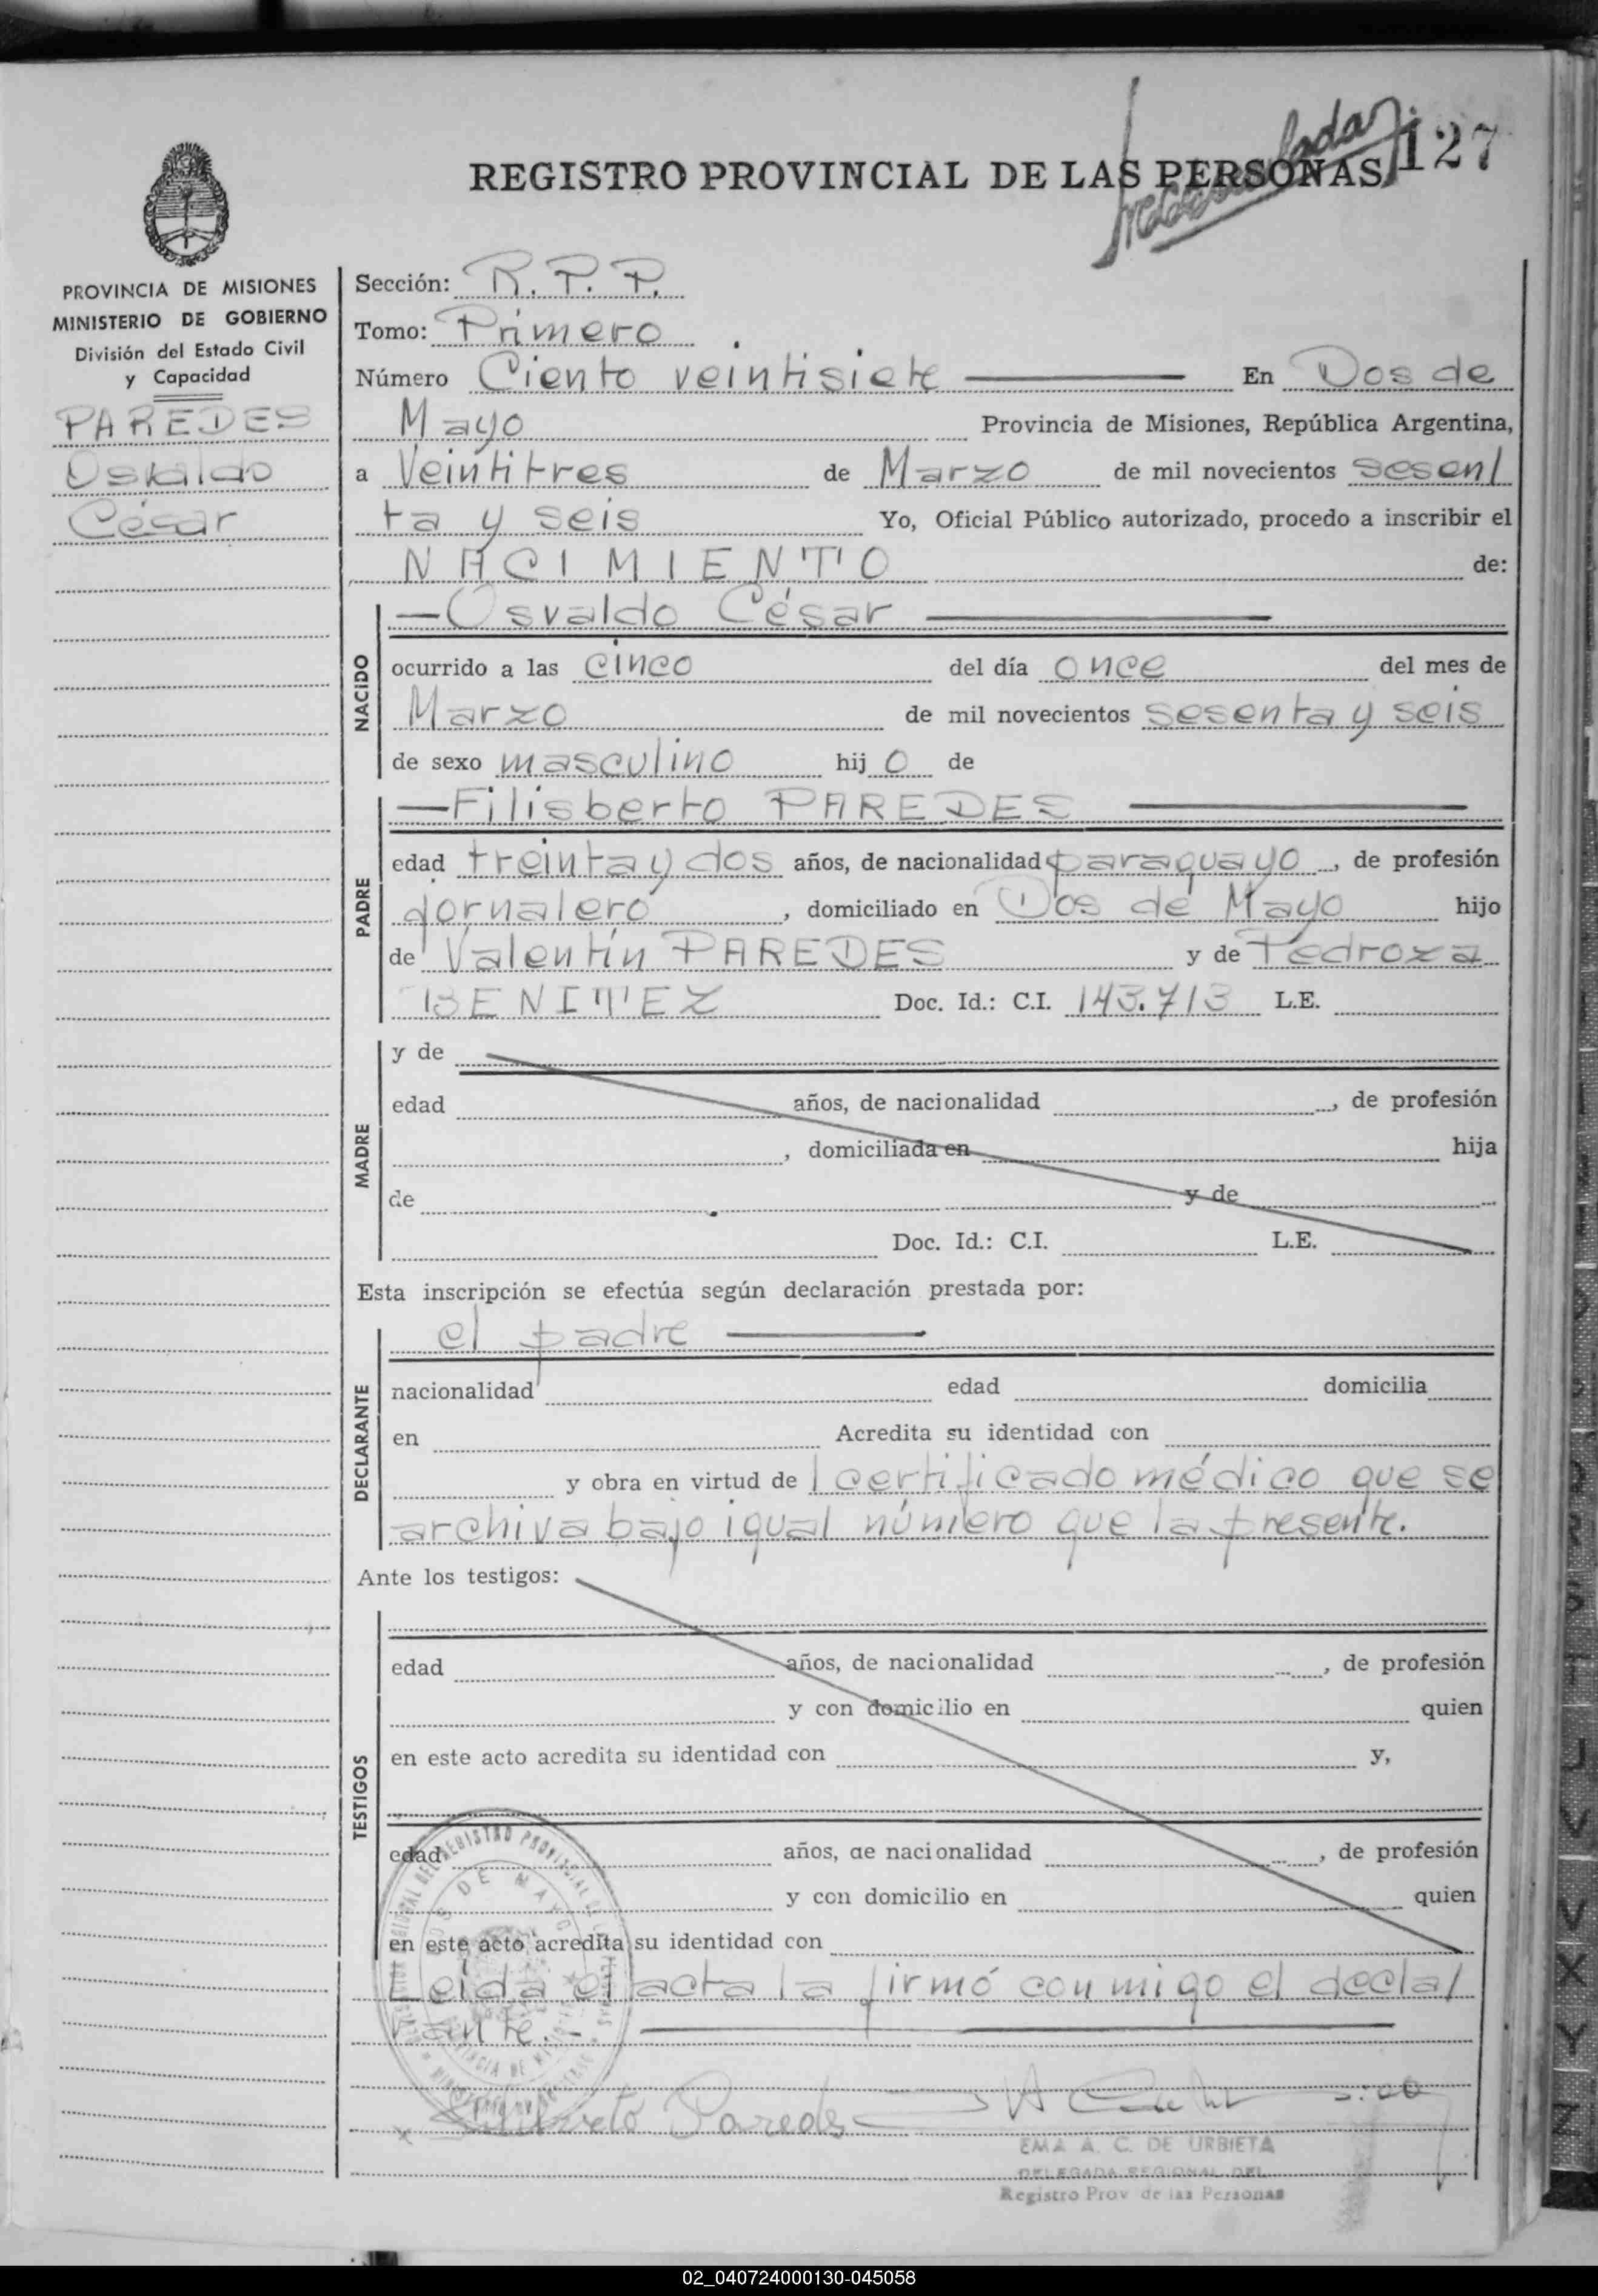 127
REGISTRO PROVINCIAL DE LAS PERSONAS
PROVINCIA DE MISIONES
MINISTERIO DE GOBIERNO
División del Estado Civil
y Capacidad
PAREDES
Osvaldo
César
Sección: R. P. P.
Tomo: Primero
Número Ciento veintisiete En Dos de
Mayo Provincia de Misiones, República Argentina,
a Veintitres de Marzo de mil novecientos sesen/
ta y seis Yo, Oficial Público autorizado, procedo a inscribir el
NACIMIENTO de:
NACIDO
—Osvaldo César
ocurrido a las cinco del día once del mes de
Marzo de mil novecientos sesenta y seis
de sexo masculino hij o de
PADRE
—Filisberto PAREDES
edad treinta y dos años, de nacionalidad paraguayo, de profesión
jornalero, domiciliado en Dos de Mayo hijo
de Valentín PAREDES y de Pedroza
BENITEZ Doc. Id.: C.I. 143.713 L.E.
MADRE
y de
edad años, de nacionalidad , de profesión
, domiciliada en hija
de y de
Doc. Id.: C.I. L.E.
Esta inscripción se efectúa según declaración prestada por:
DECLARANTE
el padre
nacionalidad edad domicilia
en Acredita su identidad con
y obra en virtud de l certificado médico que se
archiva bajo igual número que la presente.
Ante los testigos:
TESTIGOS
edad años, de nacionalidad , de profesión
y con domicilio en quien
en este acto acredita su identidad con y,
edad años, de nacionalidad , de profesión
y con domicilio en quien
en este acto acredita su identidad con
Leida el acta la firmó conmigo el decla/
rante.-
DOS DE MAYO
Paredes
EMA A. C. DE URBIETA
DELEGADA REGIONAL DEL
Registro Prov de las Personas
02_040724000130-045058